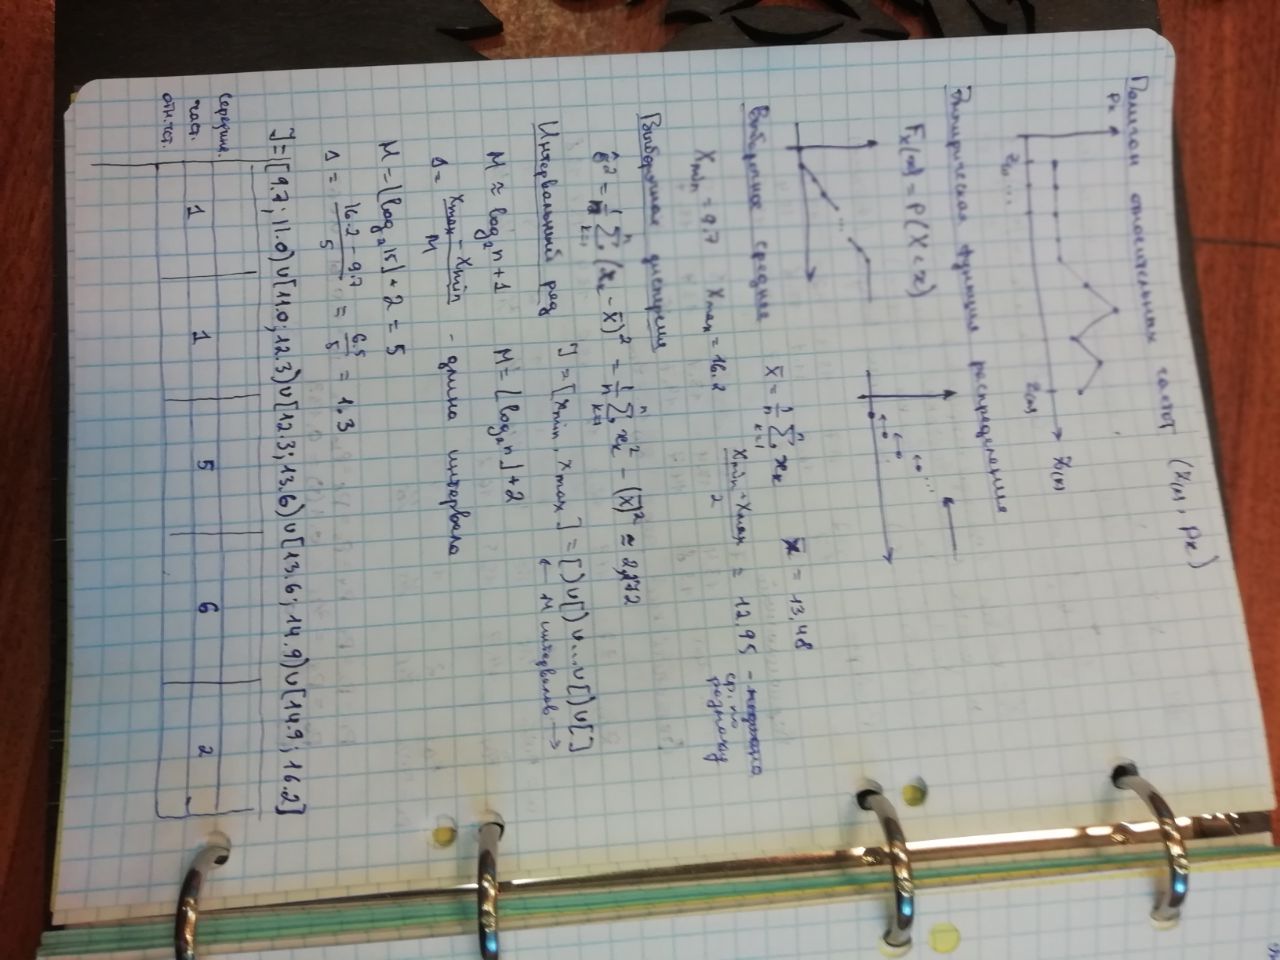 Полигон относительных частот (z₍ₖ₎, pₖ)
pₖ
z₍ₖ₎
z₍₁₎ ... z₍ₘ₎
Эмпирическая функция распределения
Fₓ(x) = P(X < x)
...
...
Выборочное среднее x̄ = 1/n ∑ₖ₌₁ⁿ xₖ x̄ = 13,48
Xmin = 9.7 Xmax = 16.2 (Xmin + Xmax)/2 = 12.95 - медиана
ср. по
размаху
Выборочная дисперсия
σ̂² = 1/n ∑ₖ₌₁ⁿ (xₖ - x̄)² = 1/n ∑ₖ₌₁ⁿ xₖ² - (x̄)² ≈ 2,272
Интервальный ряд J = [xmin, xmax] = [)∪[)∪...∪[)∪[]
← M интервалов →
M ≈ log₂n + 1 M = ⌊log₂n⌋ + 2
Δ = (xmax - xmin)/M - длина интервала
M = ⌊log₂15⌋ + 2 = 5
Δ = (16.2 - 9.7)/5 = 6.5/5 = 1.3
J = [9.7; 11.0)∪[11.0; 12.3)∪[12.3; 13.6)∪[13.6; 14.9)∪[14.9; 16.2]
середина.
част. 1 1 5 6 2
отн.чст.